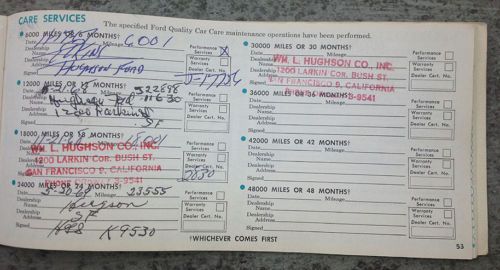 CARE SERVICES
The specified Ford Quality Car Care maintenance operations have been performed.
6000 MILES OR 6 MONTHS†
Date Mileage 6001
Performance Services X
Dealership Name
Warranty Services
Dealership Address HUGHSON FORD
Dealer Cert. No.
Signed
12000 MILES OR 12 MONTHS†
Date Mileage
Performance Services
Dealership Name Hughson Ford
Warranty Services
Dealership Address 1200 Larkin
Dealer Cert. No.
Signed SF
18000 MILES OR 18 MONTHS†
WM. L. HUGHSON CO., INC.
1200 LARKIN COR. BUSH ST.
SAN FRANCISCO 9, CALIFORNIA
-9541
Performance Services
Warranty Services
Dealer Cert. No.
Signed
24000 MILES OR 24 MONTHS†
Date 5-20-69 Mileage 23555
Performance Services
Dealership Name
Warranty Services
Dealership Address SF
Dealer Cert. No.
Signed K9530
30000 MILES OR 30 MONTHS†
WM. L. HUGHSON CO., INC.
1200 LARKIN COR. BUSH ST.
SAN FRANCISCO 9, CALIFORNIA
-9541
Performance Services
Warranty Services
Dealer Cert. No.
36000 MILES OR 36 MONTHS†
Date Mileage
Performance Services
Dealership Name
Warranty Services
Dealership Address
Dealer Cert. No.
Signed
42000 MILES OR 42 MONTHS†
Date Mileage
Performance Services
Dealership Name
Warranty Services
Dealership Address
Dealer Cert. No.
Signed
48000 MILES OR 48 MONTHS†
Date Mileage
Performance Services
Dealership Name
Warranty Services
Dealership Address
Dealer Cert. No.
Signed
†WHICHEVER COMES FIRST
53